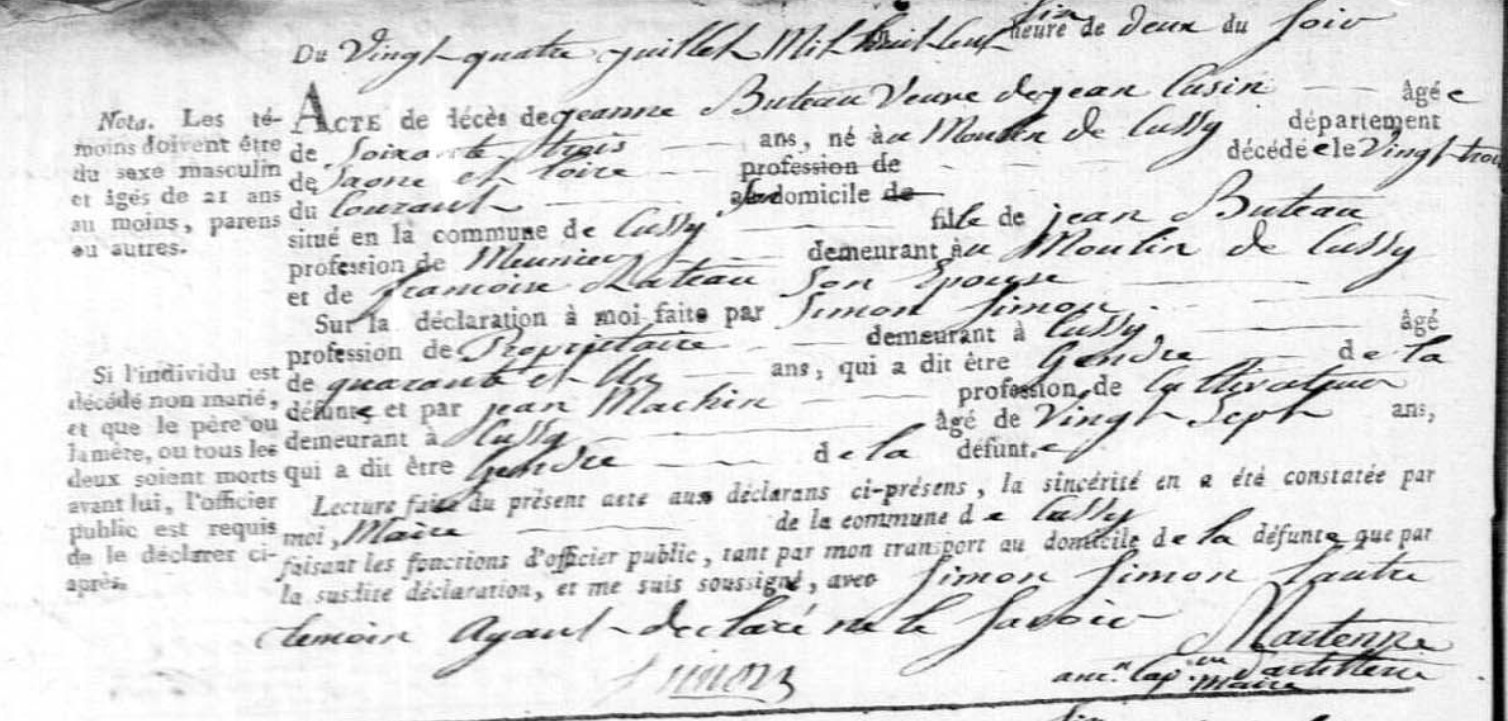 Du Vingt quatre juillet Mil huit cent six heure de deux du soir
Nota. Les témoins doivent être
du sexe masculin
et âgés de 21 ans
au moins, parens
ou autres.
ACTE de décès de jeanne Buteau Veuve de jean Cusin âgée
de Soixante trois ans, né àu Moulin de Cussy département
de Saone et loire profession de décédée le Vingt trois
du Courant domicile de
situé en la commune de Cussy fille de jean Buteau
profession de Meunier demeurant àu Moulin de Cussy
et de francoise Rateau Son Epouse
Sur la déclaration à moi faite par Simon Simon
profession de Propriétaire demeurant à Cussy âgé
de quarante et Un ans, qui a dit être Gendre de la
défunte et par jean Machin profession de Cultivateur
demeurant à Cussy âgé de Vingt Sept ans,
qui a dit être Gendre de la défunte
Si l'individu est
décédé non marié,
et que le père ou
la mère, ou tous les
deux soient morts
avant lui, l'officier
public est requis
de le déclarer ci-
après.
Lecture faite du présent acte aux déclarans ci-présens, la sincérité en a été constatée par
moi, Maire de la commune de Cussy
faisant les fonctions d'officier public, tant par mon transport au domicile de la défunte que par
la susdite déclaration, et me suis soussigné, avec Simon Simon Lautre
temoin Ayant declaré ne le Savoir
Simon
Martenne
anc.n Cap.ne d'artillerie
Maire